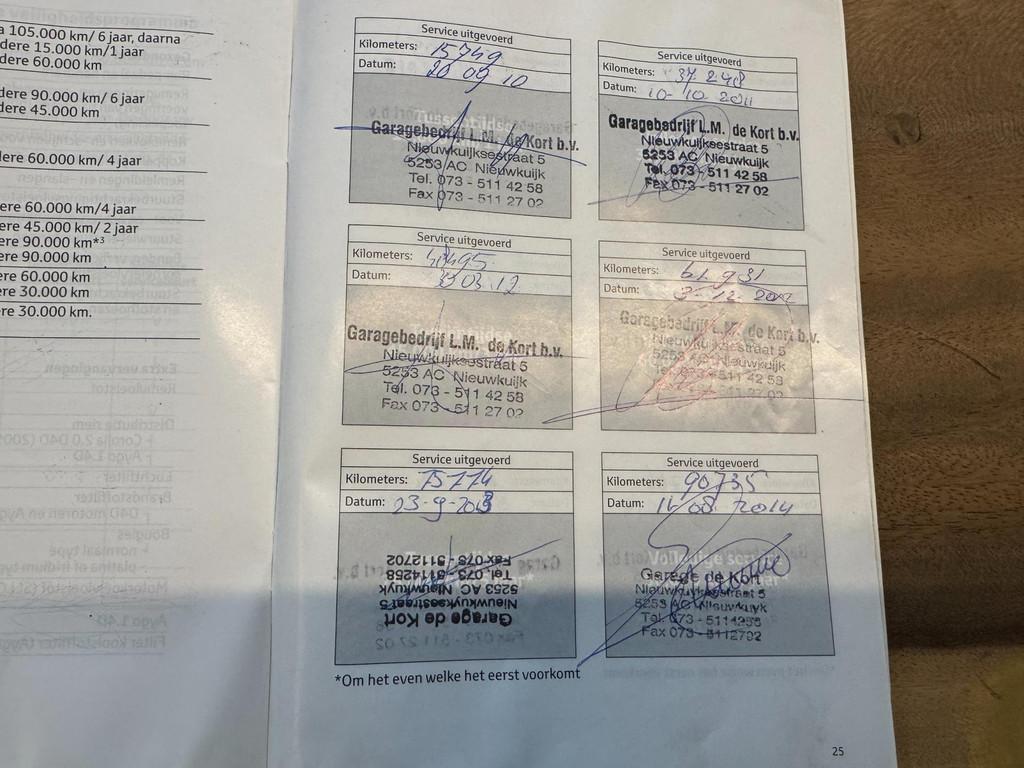 105.000 km/ 6 jaar, daarna
dere 15.000 km/1 jaar
dere 60.000 km
dere 90.000 km/ 6 jaar
dere 45.000 km
dere 60.000 km/ 4 jaar
ere 60.000 km/4 jaar
ere 45.000 km/ 2 jaar
ere 90.000 km*3
ere 90.000 km
ere 60.000 km
ere 30.000 km
ere 30.000 km.
Service uitgevoerd
Kilometers: 15749
Datum: 20 09 10
Garagebedrijf L.M. de Kort b.v.
Nieuwkuijksestraat 5
5253 AC Nieuwkuijk
Tel. 073 - 511 42 58
Fax 073 - 511 27 02
Service uitgevoerd
Kilometers: 37 248
Datum: 10-10 2011
Garagebedrijf L.M. de Kort b.v.
Nieuwkuijksestraat 5
5253 AC Nieuwkuijk
Tel. 073 - 511 42 58
Fax 073 - 511 27 02
Service uitgevoerd
Kilometers:
Datum: 03 12
Garagebedrijf L.M. de Kort b.v.
Nieuwkuijksestraat 5
5253 AC Nieuwkuijk
Tel. 073 - 511 42 58
Fax 073 - 511 27 02
Service uitgevoerd
Kilometers: 61 931
Datum: 3-12 2012
Garagebedrijf L.M. de Kort b.v.
Nieuwkuijksestraat 5
5253 AC Nieuwkuijk
Tel. 073 - 511 42 58
Fax 073 - 511 27 02
Service uitgevoerd
Kilometers: 75774
Datum: 23-9-2013
Garage de Kort
Nieuwkuyksestraat 5
5253 AC Nieuwkuyk
Tel. 073 - 5114258
Fax 073 - 5112702
Service uitgevoerd
Kilometers: 90735
Datum: 08 2014
Volledige
Garage de Kort
Nieuwkuyksestraat 5
5253 AC Nieuwkuyk
Tel. 073 - 5114258
Fax 073 - 5112702
*Om het even welke het eerst voorkomt
25